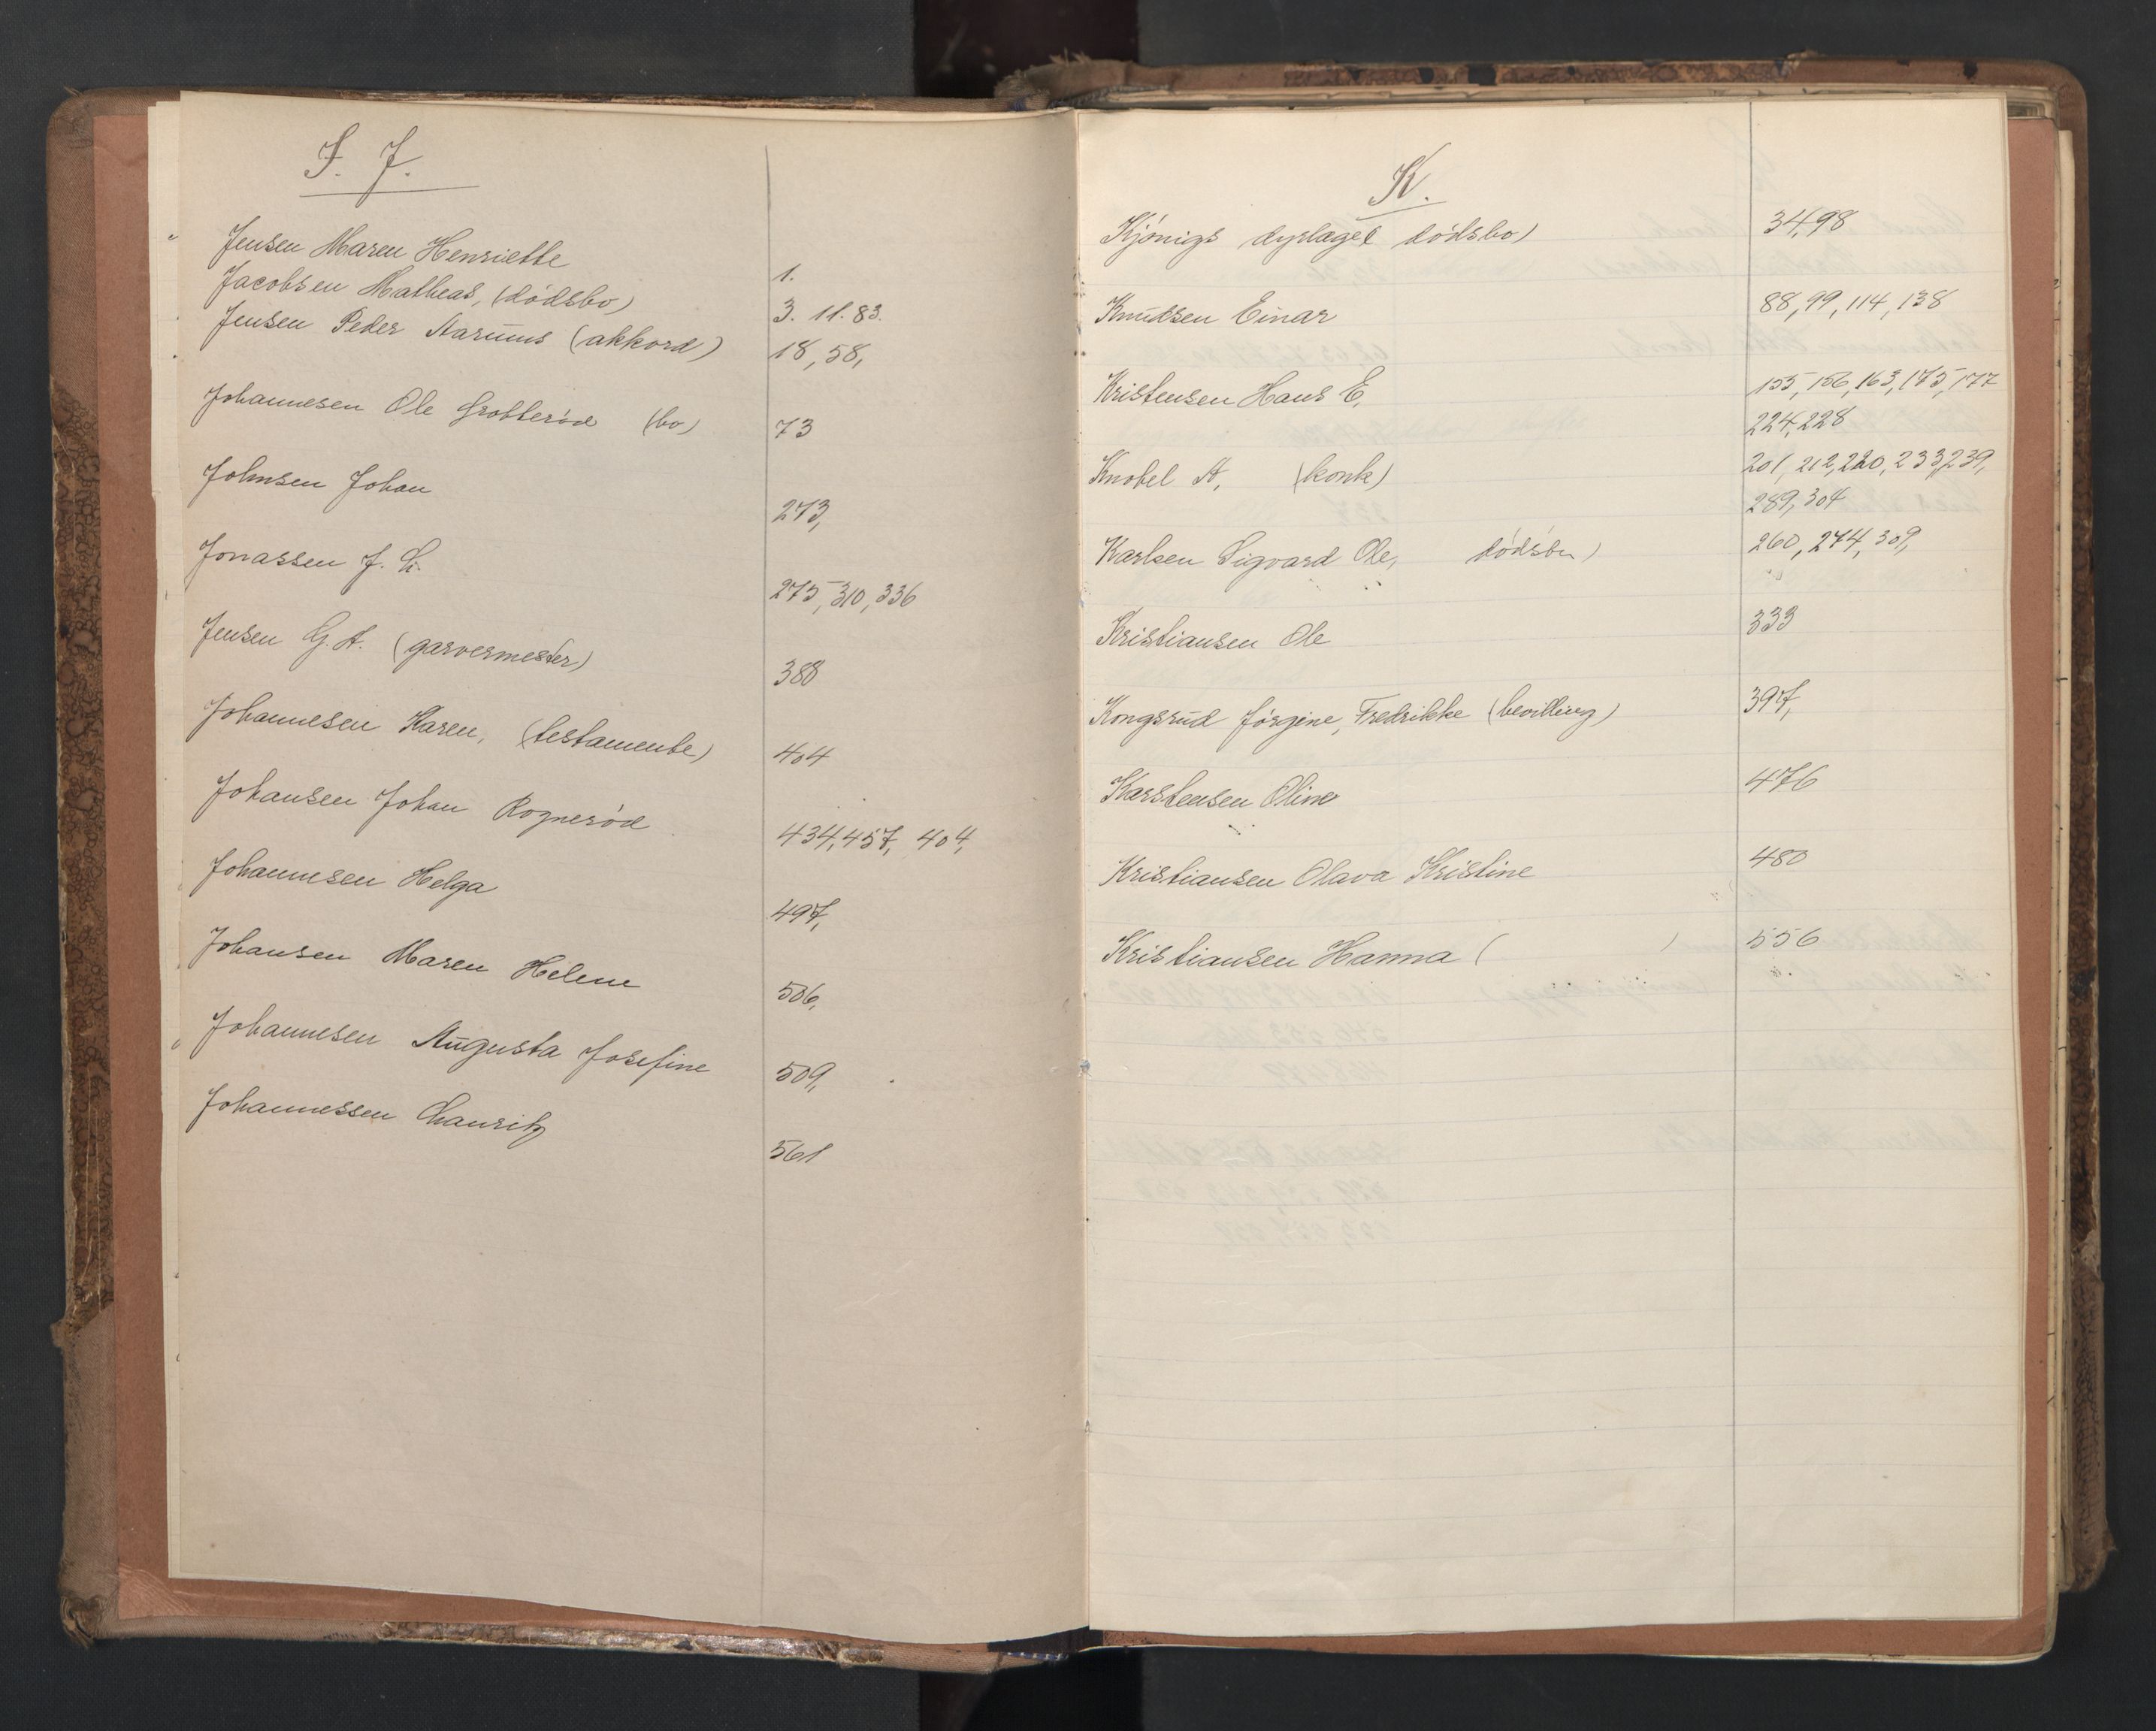 I. J.
Jensen Maren Henriette 1.
Jacobsen Matheas, (dödsbo) 3. 11. 83.
Jensen Peder Aarums (akkord) 18, 58,
Johannesen Ole Grotteröd (bo) 73
Johnsen Johan 273,
Jonassen J. L. 275, 310, 336
Jensen G. A. (garvermester) 388
Johannesen Karen, (testamente) 404
Johansen Johan Rogneröd 434, 457, 404,
Johannesen Helga 497,
Johansen Maren Helene 506,
Johannesen Augusta Josefine 509,
Johannessen Chauritz 561
K.
Kjönigs dyrlæge dödsbo) 34, 98
Knudsen Einar 88, 99, 114, 138
Kristensen Hans E. 155, 156, 163, 175, 177
224, 228
Knobel A, (konk) 201, 212, 220, 233, 239,
289, 304
Karlsen Sigvard Ole, dödsbo) 260, 274, 309,
Kristiansen Ole 333
Kongsrud Jörgine, Fredrikke (bevilling) 397,
Karstensen Oline 476
Kristiansen Olava Kristine 480
Kristiansen Hanna ( ) 556